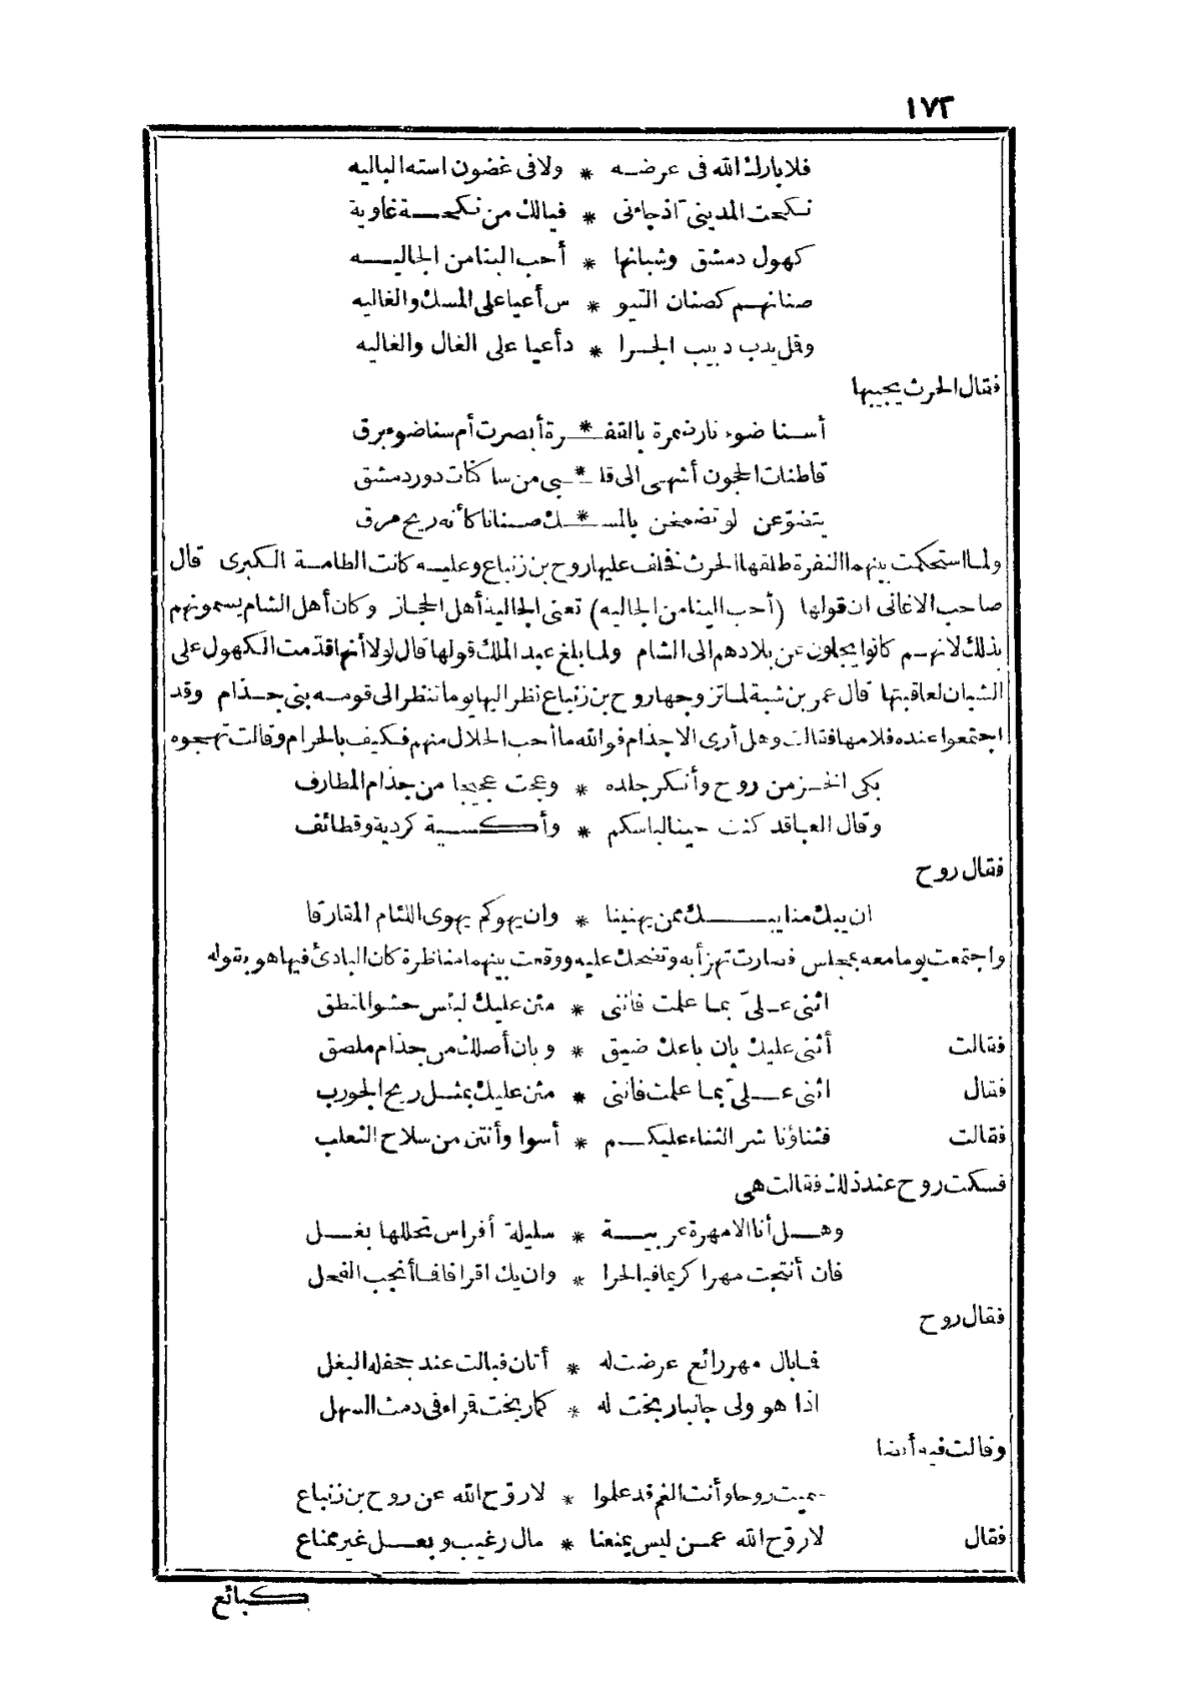 ١٧٢
فلا بارك الله فى عرضـه * ولا فى غضون استه الباليه
نكحت المدينى اذ جاءنى * فيالك من نكحـة غاوية
كهول دمشق وشبانها * أحب الينا من الجاليـه
صنانهـم كصنان التيو * س أعيا على المسك والغاليه
وقل يدب دبيب الجـرا * د أعيا على الغال والغاليه
فقال الحرث يجيبها
أسـنا ضوء نار ضمرة بالقفـ * ـرة أبصرت أم سنا ضوء برق
قاطنات الحجون أشهى الى قلـ * ـبى من ساكنات دور دمشق
يتضوّعن لو تضمخن بالمسـ * ـك صنانا كأنه ريح مرق
ولما استحكمت بينهما النفرة طلقها الحرث فخلف عليها روح بن زنباع وعليـه كانت الطامـة الكبرى قال
صاحب الاغانى ان قولها (أحب الينا من الجاليه) تعنى الجالية أهل الحجاز وكان أهل الشام يسمونهم
بذلك لانهـم كانوا يجلون عن بلادهم الى الشام ولما بلغ عبد الملك قولها قال لولا أنها قدّمت الكهول على
الشبان لعاقبتها قال عمر بن شبة لما تزوجها روح بن زنباع نظر اليها يوما تنظر الى قومـه بنى جـذام وقد
اجتمعوا عنده فلامها فقالت وهل أرى الا جذام فوالله ما أحب الحلال منهم فـكيف بالحرام وقالت تهجوه
بكى الخـز من روح وأنكر جلده * وعجت عجيجا من جذام المطارف
وقال العبا قد كنت حينا لباسكم * وأكـسـية كردية وقطائف
فقال روح
ان يبك منا يبـــك ممن يهيننا * وان يهوكم يهوى اللئام المقارقا
واجتمعت يوما معه بمجلس فصارت تهزأ به وتضحك عليه ووقعت بينهما مناظرة كان البادئ فيها هو بقوله
اثنى عـلىّ بمـا علمت فاننى * مثن عليك لبئس حشو المنطق
فقالت أثنى عليك بان باعك ضيق * وبان أصلك من جذام ملصق
فقال اثنى عـلىّ بمـا علمت فاننى * مثن عليك بمثـل ريح الجورب
فقالت فثناؤنا شر الثناء عليكـم * أسوا وأنتن من سلاح الثعلب
فسكت روح عند ذلك فقالت هى
وهـل أنا الا مهرة عربيـة * سليلة أفراس تحللها بغـل
فان أنتجت مهرا كريما فبالحرا * وان يك اقرافا فـا أنجب الفحل
فقال روح
فـا بال مهر رائع عرضت له * أتان فبالت عند جحفله البغل
اذا هو ولى جانبا ربخت له * كما ربخت قراء فى دمث السهل
وقالت فيه أيضا
سميت روحا وأنت الغم قد علموا * لا روّح الله عن روح بن زنباع
فقال لا روّح الله عمـن ليس يمنعنا * مال رغيب وبعـل غير ممناع
كـبائع